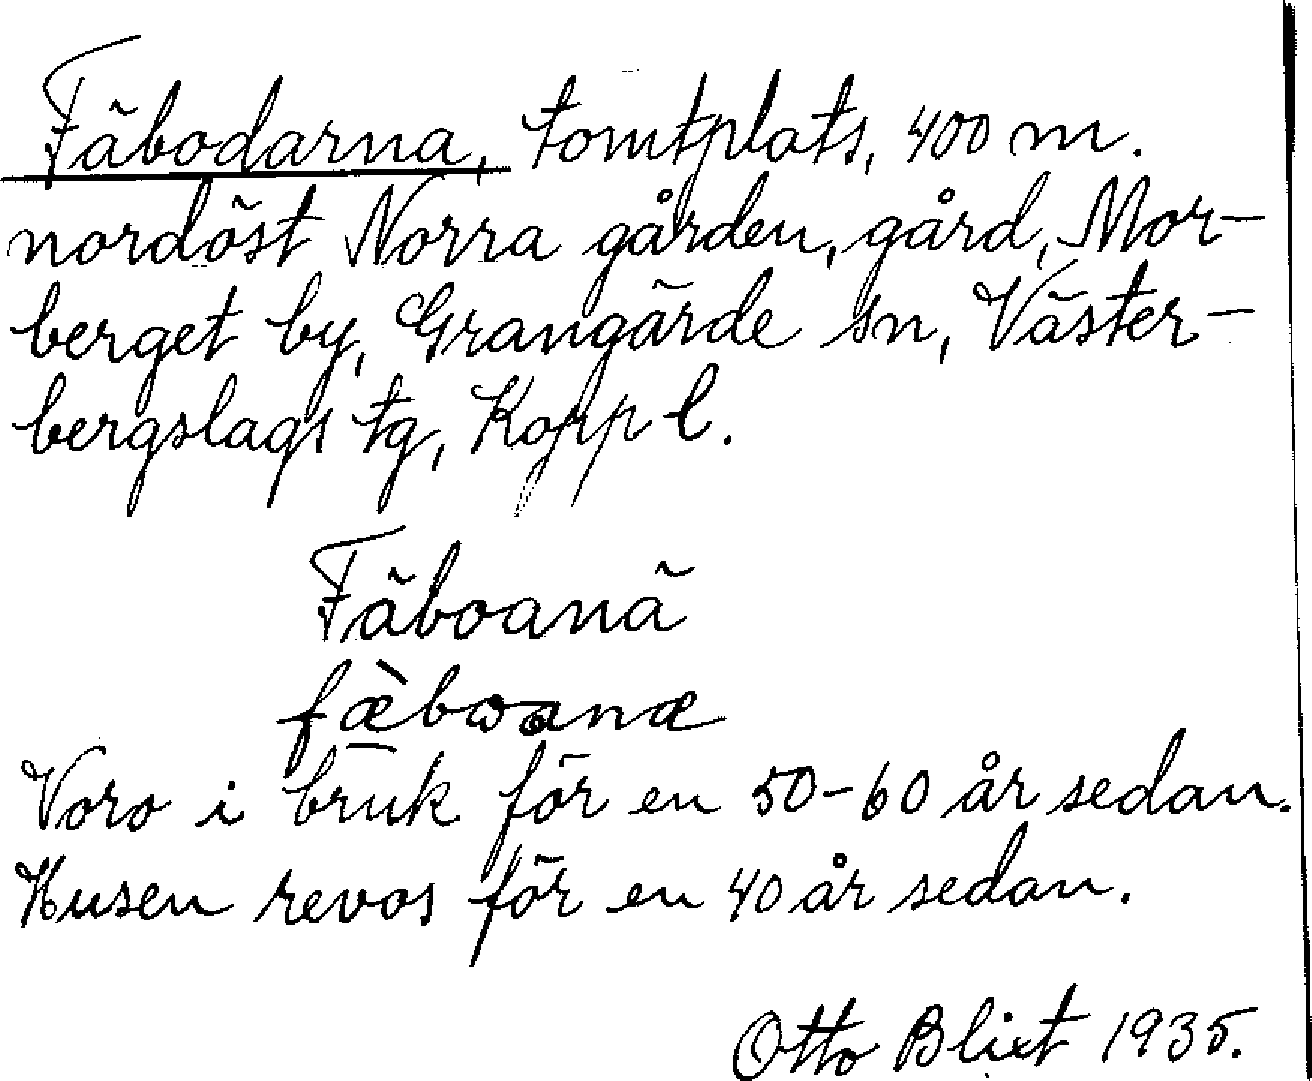 Fäbodarna, tomtplats, 400 m.
nordöst Norra gården, gård, Mor-
berget by, Grangärde sn, Väster-
bergslags tg, Kopp l.
Fäboanä
fæ̀bωanæ
Voro i bruk för en 50-60 år sedan.
Husen revos för en 40 år sedan.
Otto Blixt 1935.